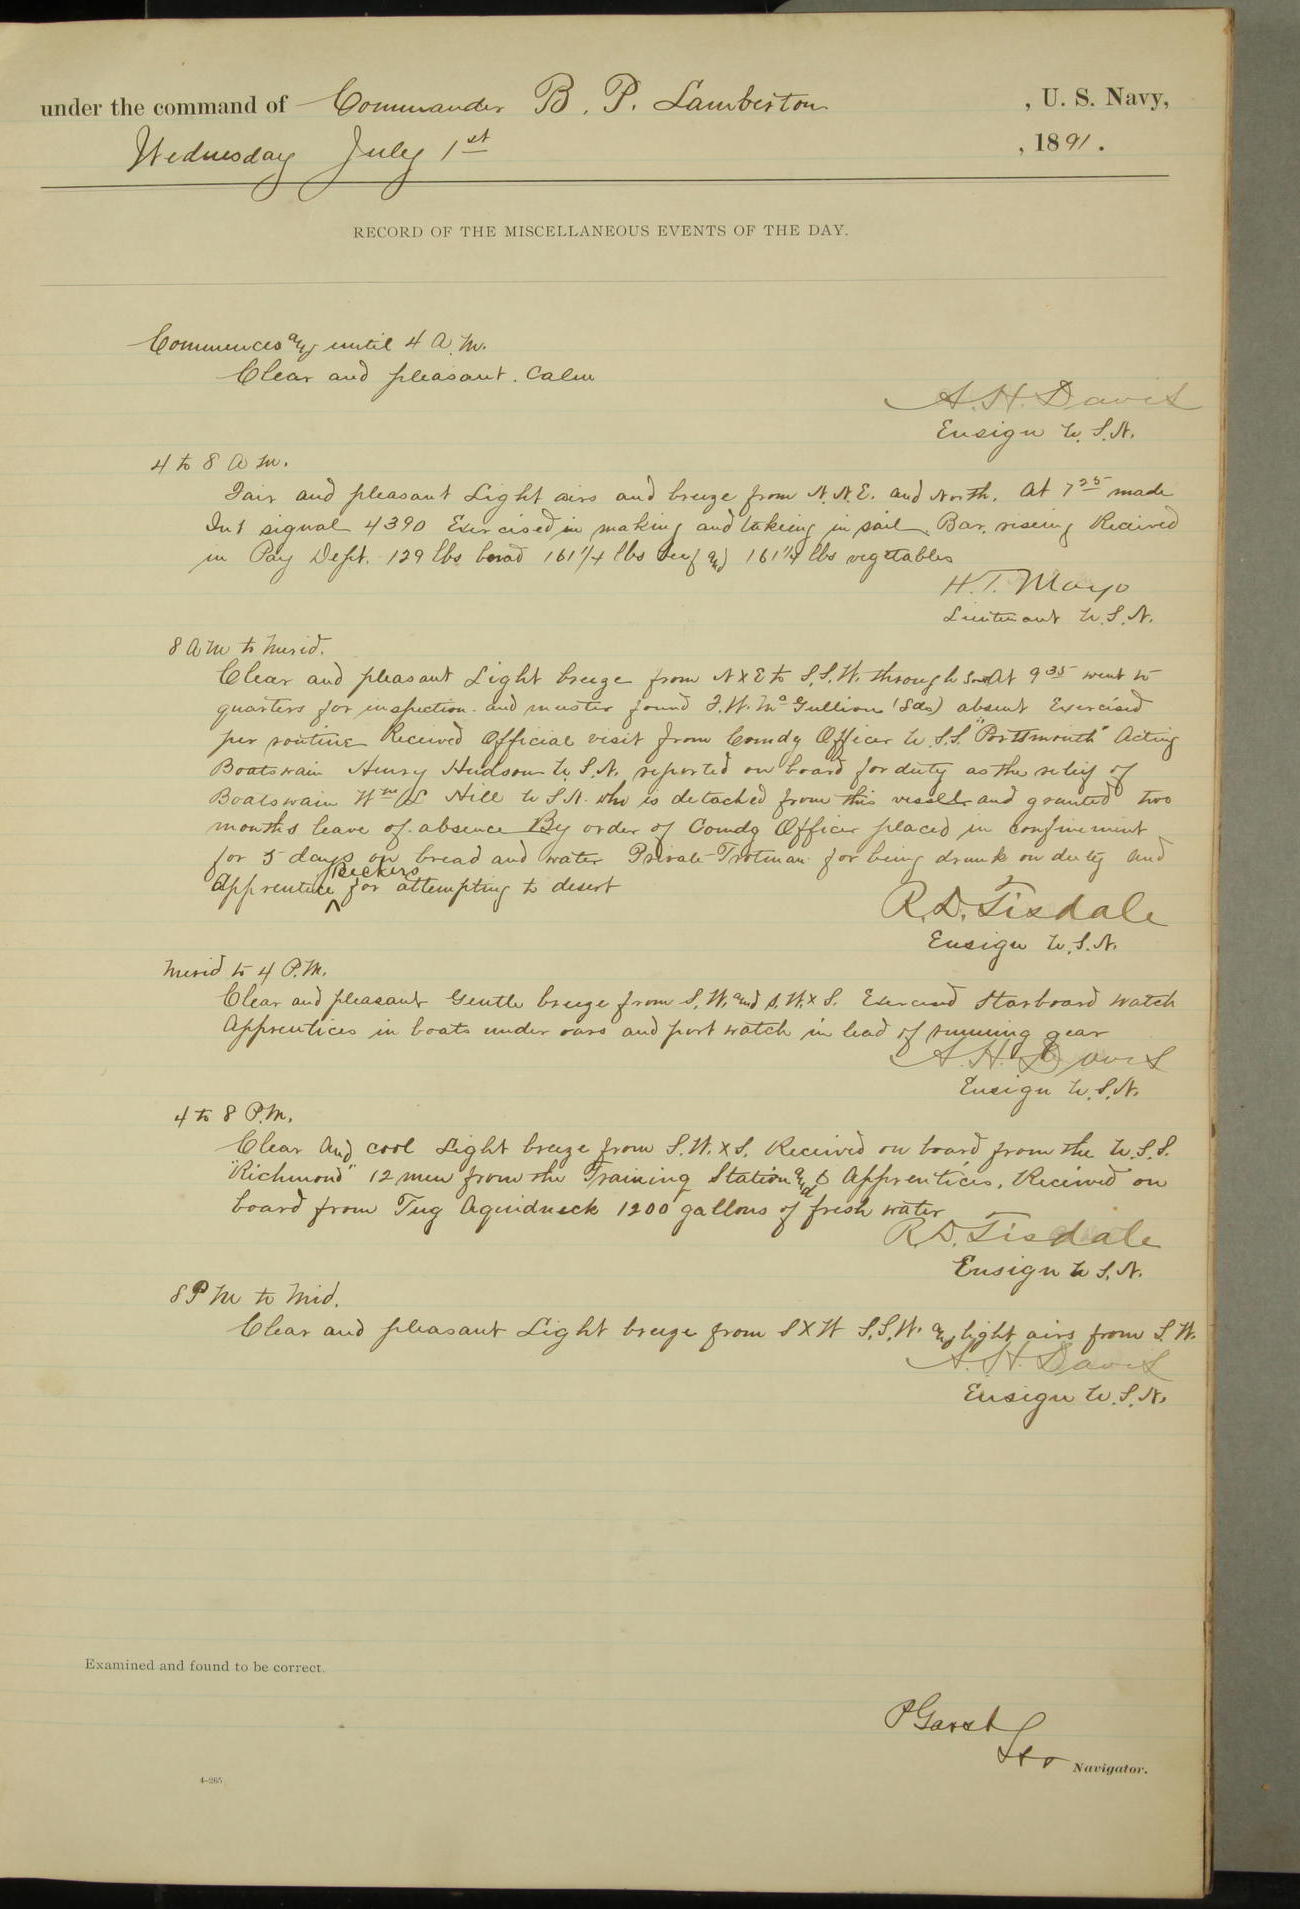 under the command of Commander B. P. Lamberton, U. S. Navy,
Wednesday July 1st, 1891.
RECORD OF THE MISCELLANEOUS EVENTS OF THE DAY.
Commences and until 4 A.M.
Clear and pleasant. Calm
A. H. Davis
Ensign U.S.N.
4 to 8 A M.
Fair and pleasant Light airs and breeze from N.N.E. and North. At 7 25 made
Int signal 4390 Exercised in making and taking in sail Bar. rising Received
in Pay Dept. 129 lbs bread 161 1/4 lbs beef and 161 1/4 lbs vegetables
H. T. Mayo
Lieutenant U.S.N.
8 A M to Merid.
Clear and pleasant Light breeze from N x E to S.S.W. through At 9 35 went to
quarters for inspection and muster found F. W. Mc Gullion (Sea) absent Exercised
per routine Received Official visit from Comdg Officer U.S.S. "Portsmouth" Acting
Boatswain Henry Hudson U.S.N. reported on board for duty as the relief of
Boatswain Wm L Hill U S N. who is detached from this vessel and granted two
months leave of absence By order of Comdg Officer placed in confinement
for 5 days on bread and water Private Trotman for being drunk on duty and
Apprentice Beckers for attempting to desert
R. D. Tisdale
Ensign U.S.N.
Merid to 4 P.M.
Clear and pleasant Gentle breeze from S.W. and S.W. x S. Exercised Starboard watch
Apprentices in boats under oars and port watch in lead of running gear
A. H. Davis
Ensign U.S.N.
4 to 8 P.M.
Clear and cool Light breeze from S.W. x S. Received on board from the U.S.S.
"Richmond" 12 men from the Training Station and 6 Apprentices. Received on
board from Tug Aquidneck 1200 gallons of fresh water
R. D. Tisdale
Ensign U S. N.
8 P M to Mid.
Clear and pleasant Light breeze from S x W S.S.W. and light airs from S. W.
A. H. Davis
Ensign U.S.N.
Examined and found to be correct.
P Garst
Navigator.
4-265